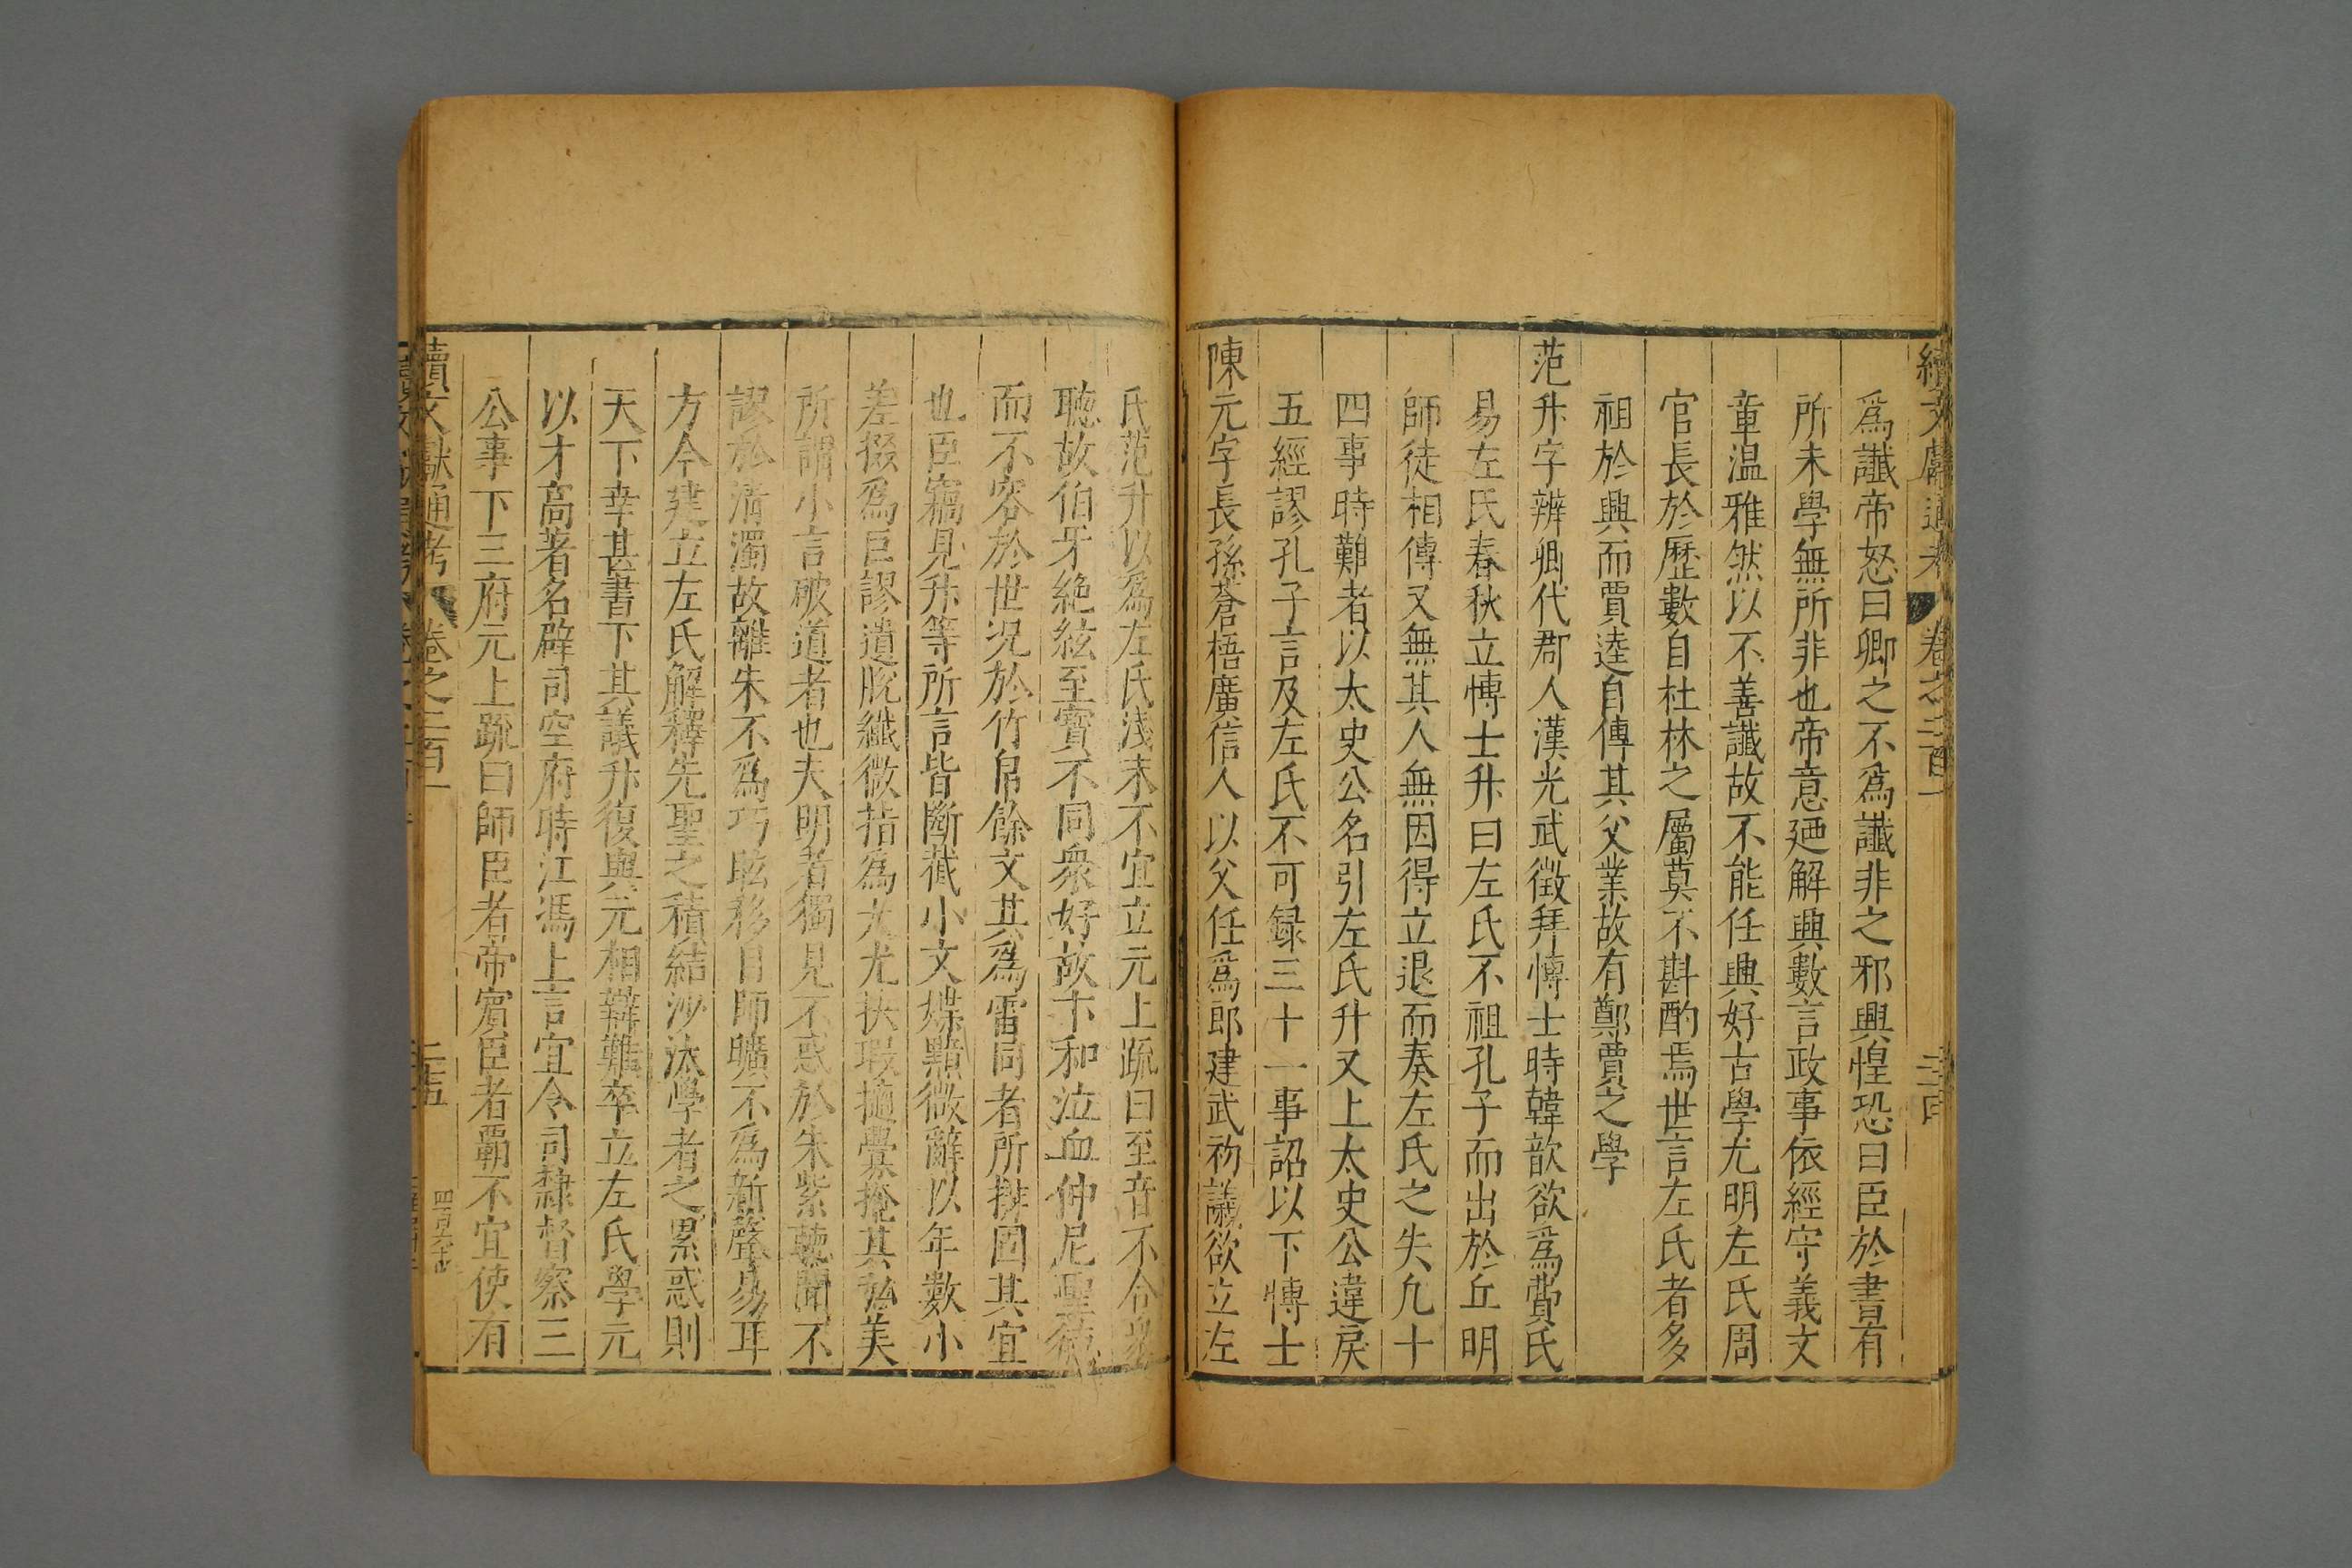 續文獻通考 卷之二百一 二十四
爲讖帝怒曰卿之不爲讖非之邪興惶恐曰臣於書有
所未學無所非也帝意廼解興數言政事依經守義文
章温雅然以不善讖故不能任興好古學尤明左氏周
官長於歷數自杜林之屬莫不斟酌焉世言左氏者多
祖於興而賈逵自傳其父業故有鄭賈之學
范升字辨卿代郡人漢光武徵拜愽士時韓歆欲爲費氏
易左氏春秋立愽士升曰左氏不祖孔子而出於丘明
師徒相傳又無其人無因得立退而奏左氏之失九十
四事時難者以太史公名引左氏升又上太史公違戾
五經謬孔子言及左氏不可録三十一事詔以下愽士
陳元字長孫蒼梧廣信人以父任爲郎建武初議欲立左
氏范升以爲左氏淺末不宜立元上疏曰至音不合衆
聴故伯牙絶絃至寳不同衆好故卞和泣血仲尼聖德
而不容於世况於竹帛餘文其爲雷同者所排固其宜
也臣竊見升等所言皆斷截小文媟黷微辭以年數小
差掇爲巨謬遺脱纖微指爲大尤抉瑕擿舋掩其弘美
所謂小言破道者也夫明者獨見不惑於朱紫聴聞不
謬於清濁故離朱不爲巧眩移目師曠不爲新聲易耳
方今建立左氏解釋先聖之積結洮汰學者之累惑則
天下幸甚書下其議升復與元相辯難卒立左氏學元
以才高著名辟司空府時江馮上言宜令司隸督察三
公事下三府元上疏曰師臣者帝賔臣者覇不宜使有
續文獻通考 卷之二百一 二十五